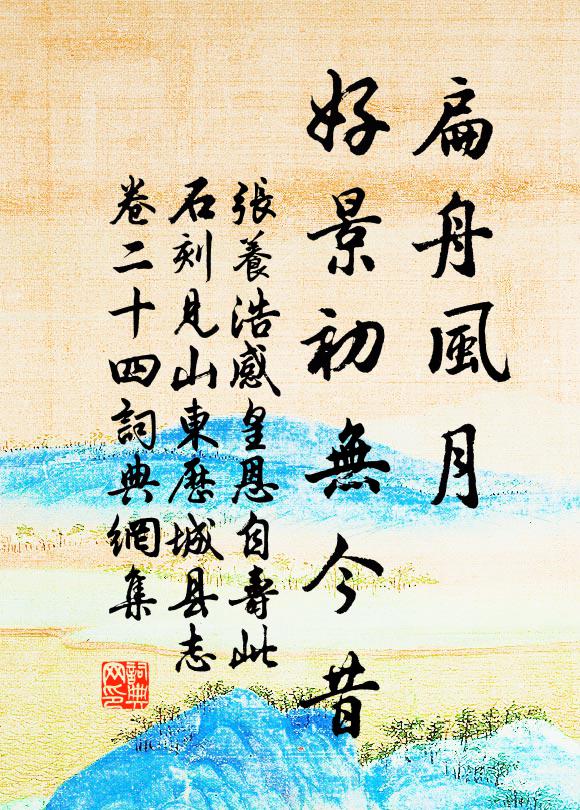 扁舟風月
好景初無今昔
張養浩感皇恩自壽此
石刻見山東歷城县志
卷二十四詞典網集
詞典
网印